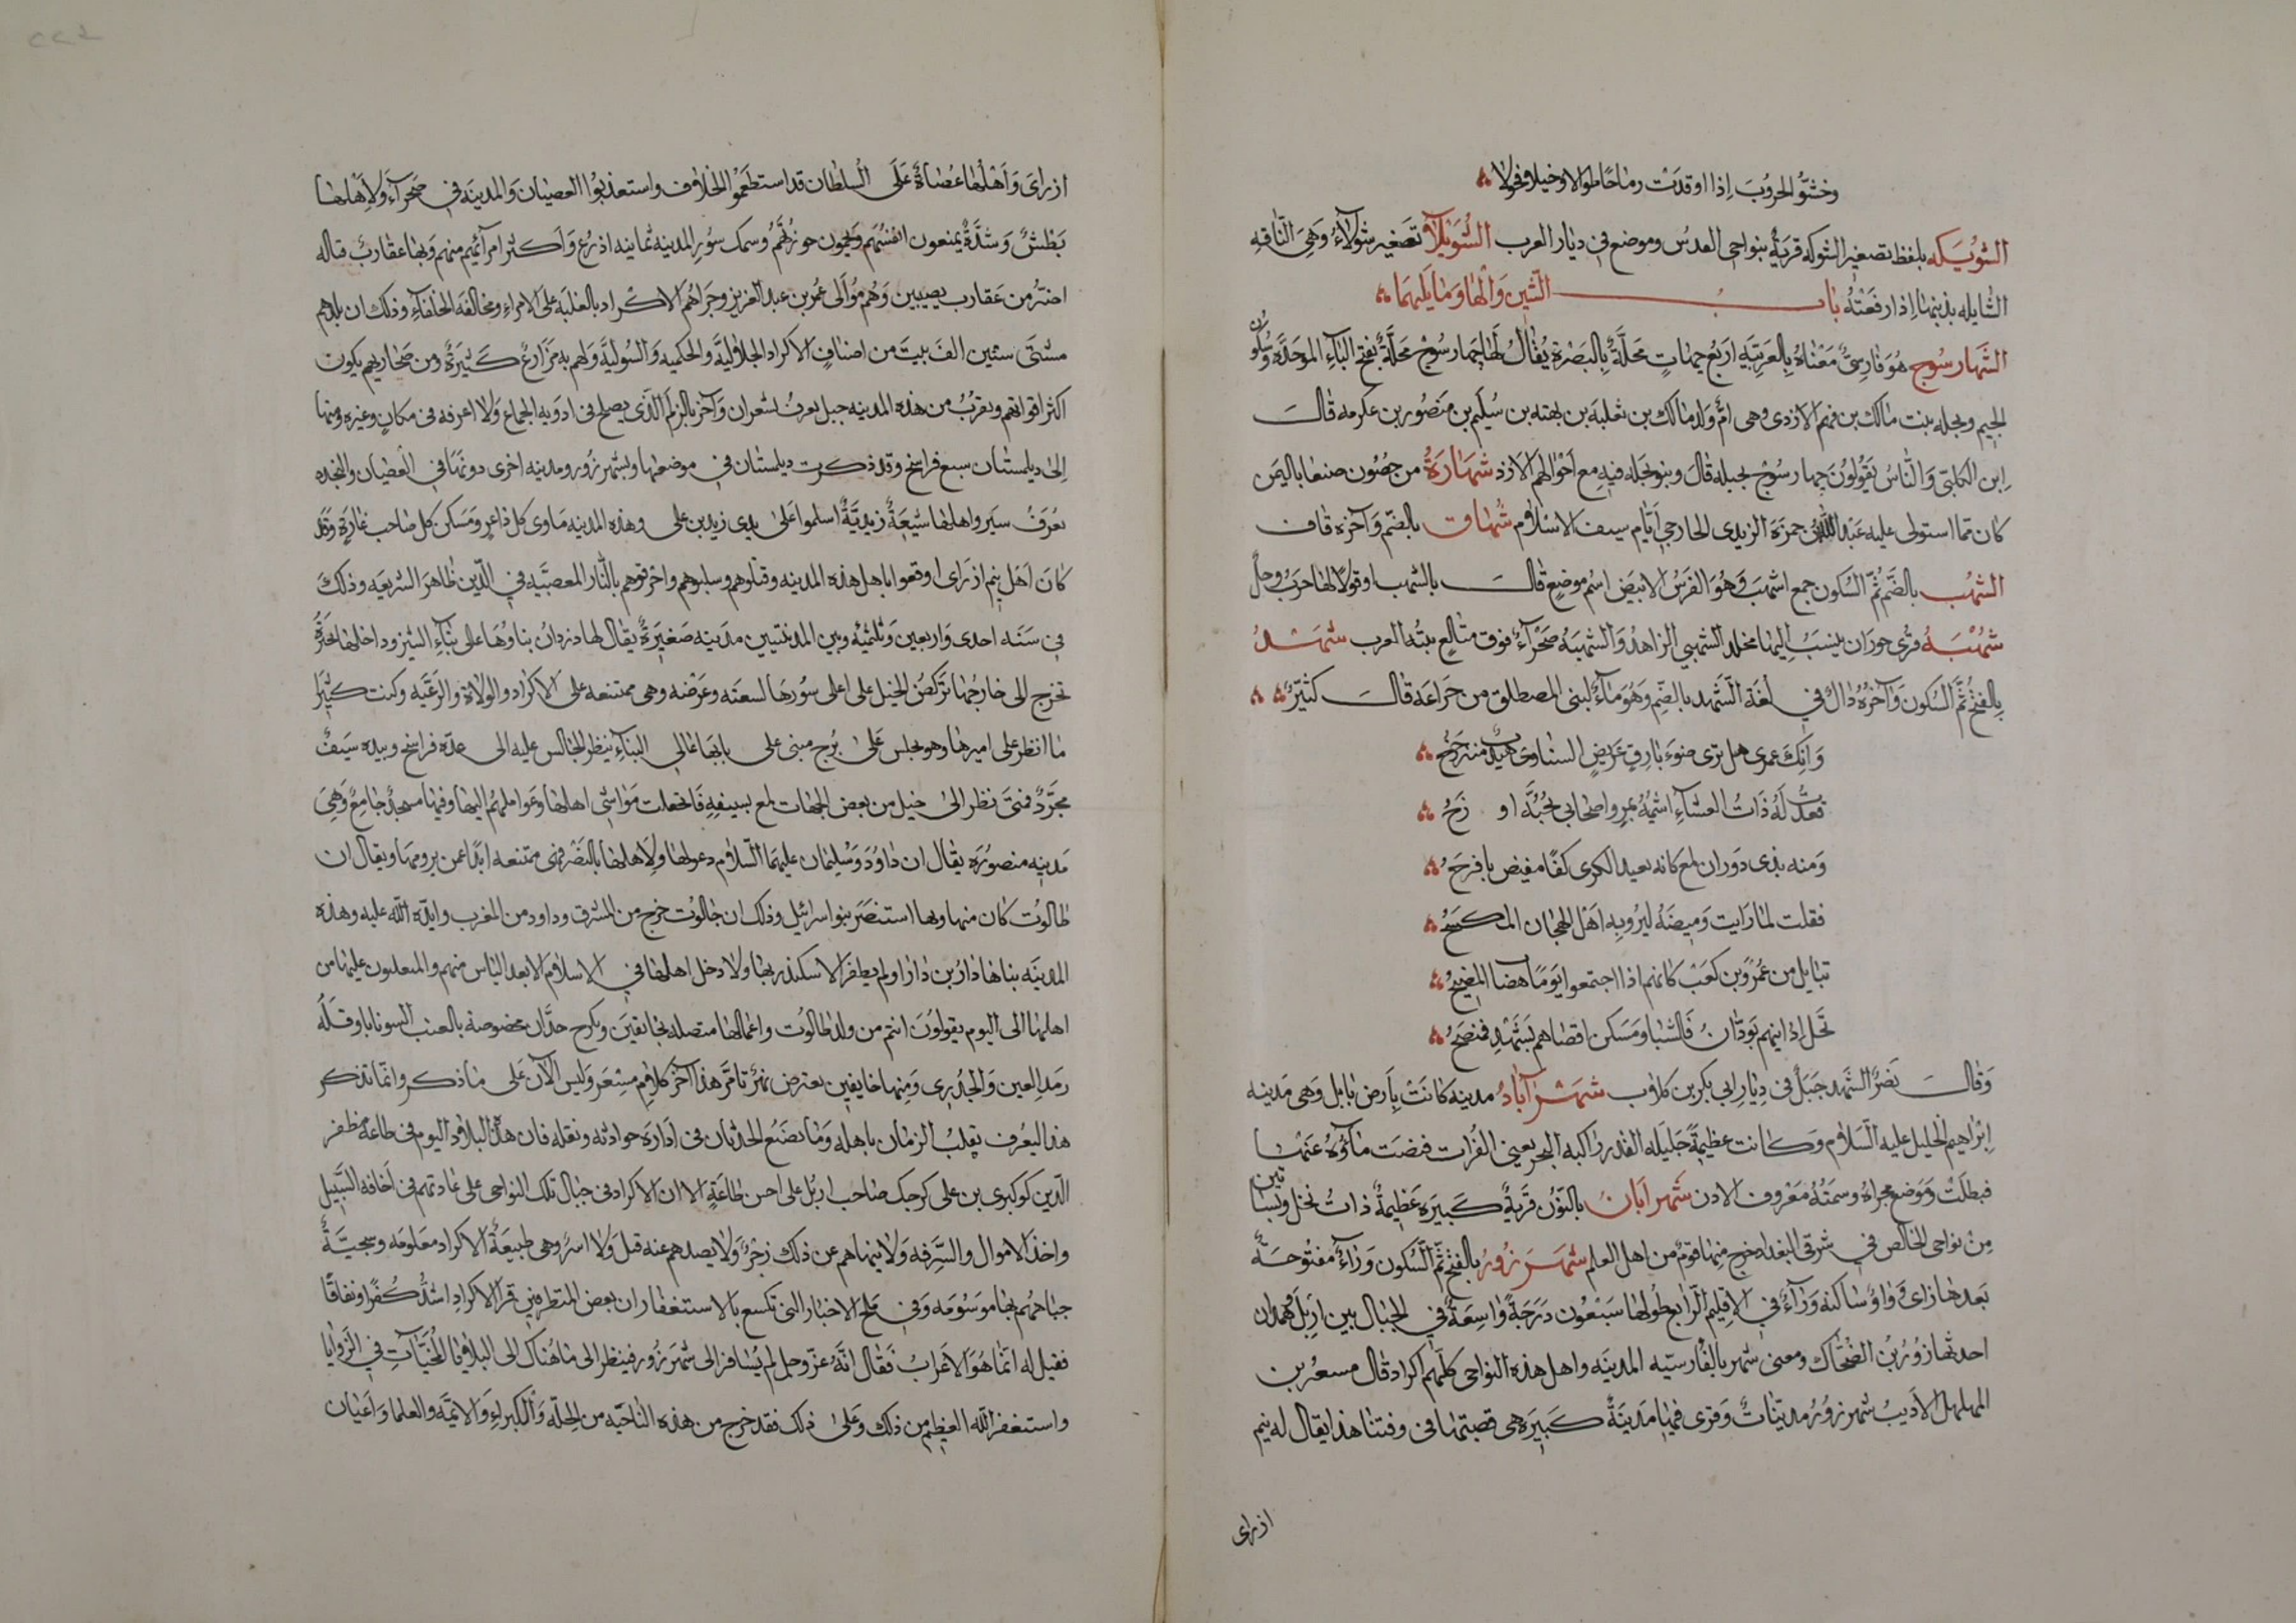 وخشوا الحروب إذا اوقدت رماحا طوالا وخيلا فحولا
الشويكه بلفظ تصغير الشوكه قرية بنواحي القدس وموضع في ديار العرب الشويلا تصغير شولاء وهي الناقه
الشايله بذنبها اذا رفعته باب الشين والها وما يليهما
الشهارسوج هو فارسي معناه بالعربيه اربع جهات محلة بالبصرة يقال لها جهارسوج محلة بفتح الباء الموحده وسكون
الجيم وبجله بنت مالك بن فهم الازدي وهي ام ولد مالك بن ثعلبة بن بهته بن سليم بن منصور بن عكرمه قال
ابن الكلبي والناس يقولون جهارسوج بجيله قال وبنو بجله فيه مع اخوالهم الازد شهارة من حصون صنعا باليمن
كان مما استولى عليه عبد الله بن حمزة الزيدي الخارجي ايام سيف الاسلام شهاق بالضم وآخره قاف
الشهب بالضم ثم السكون جمع اشهب وهو الفرس الابيض اسم موضع قال بالشهب اقوالا لها حرب وحل
شهبة قرى حوران ينسب اليها مخلد الشهبي الزاهد والشهبة صحراء فوق متالع بيته العرب شهد
بالفتح ثم السكون وآخره دال في لغة الشهد بالضم وهو ماء لبني المصطلق من خزاعة قال كثير
وانك عمري هل ترى ضوء بارق عريض السنا وى هيدب متزحزح
قعدت له ذات العشاء اشيمه بمر واصحابي بجبة اوزح
ومنه بذي دوران لمع كانه بعيد الكرى كفا مفيض باقرح
فقلت لما رايت وميضه ليرو به اهل الهجان المكشح
تبايل من عمرو بن كعب كانهم اذا اجتمعوا يوما هضاب المضيح
تحل اداينهم بودان فالشبا ومسكن اقصاهم بشهد فمنصح
وقال نصر الشهد جبل في ديار ابي بكر بن كلاب شهراباد مدينه كانت بارض بابل وهي مدينه
ابراهيم الخليل عليه السلام وكانت عظيمة جليله القدر راكبه البحر يعني الفرات فنضت ماؤه عنها
فبطلت وموضع مجراه وسمته معروف الا الان شهرابان بالنون قرية كبيره عظيمة ذات نخل وبساتين
من نواحي الخالص في شرقي البغداد خرج منها قوم من اهل العلم شهرزور بالفتح ثم السكون وراء مفتوحة
بعدها زاى وواو ساكنه وراء في الاقليم الرابع طولها سبعون درجة واسعة في الجبال بين اربل وهمدان
احدثها زور بن الضحاك ومعنى شهر بالفارسيه المدينه واهل هذه النواحي كلهم اكراد قال مسعر بن
المهلهل الاديب شهرزور مدينات وقرى فيها مدينة كبيره هي قصبتها في وقتنا هذا يقال له نيم
ازراى
ازراى واهلها عصاة على السلطان قد استطعموا الخلاف واستعذبوا العصيان والمدينه في صحراء ولاهلها
بطش وشدة يمنعون انفسهم ويحمون حوزتهم وسمك سور المدينه ثمانيه اذرع واكثر امرآئهم منهم وبها عقارب قتاله
اضر من عقارب نصيبين وهم موالي عمر بن عبد العزيز وجراهم الاكراد بالغلبه على الامراء ومخالفة الخلفاء وذلك ان بلدهم
مشتى ستين الف بيت من اصناف الاكراد الجلاليه والحكميه والسوليه ولهم به مزارع كثيرة ومن صحاريهم يكون
اكثر اقواتهم وبقرب من هذه المدينه جبل يعرف بشعران وآخر بالزلم الذي يصلح في ادويه الجماع ولا اعرفه في مكان وغيره ومنها
الى ديلمستان سبع فراسخ وقد ذكرت ديلمستان في موضعها وبشهرزور مدينه اخرى دونها في العصيان والنجده
تعرف بشير واهلها شيعة زيدية اسلموا على يدي زيد بن علي وهذه المدينه ماوى كل ذاعر ومسكن كل صاحب غارة وقد
كان اهل نيم ازراى اوقعوا باهل هذه المدينه وقتلوهم وسلبوهم واحرقوهم بالنار لعصبية في الدين ظاهر الشريعه وذلك
في سنه احدى واربعين وثلثمئه وبين المدينتيين مدينه صغيرة يقال لها دزدان بناؤها على بناء الشيز وداخلها بحيرة
تخرج الى خارجها تركض الخيل على اعلى سورها لسعته وعرضه وهي ممتنعه على الاكراد والولاة والرعيه وكنت كثيرا
ما انظر على اميرها وهو يجلس على برج مبني على بابها عالي البناء ينظر الجالس عليه الى عدة فراسخ وبيده سيف
مجرد فمتى نظر الى خيل من بعض الجهات لمع بسيفه فانجفلت مواشي اهلها وعواملهم اليها وفيها مسجد جامع وهي
مدينه منصوره يقال ان داوود وسليمان عليهما السلام دعوا لها ولاهلها بالنصر فهي ممتنعه ابدا عمن يرومها ويقال ان
طالوت كان منها وبها استنصر بنو اسرائيل وذلك ان جالوت خرج من المشرق وداود من المغرب وايده الله عليه وهذه
المدينه بناها دارا بن دارا ولم يظفر الاسكندر بها ولا دخل اهلها في الاسلام الا بعد الياس منهم والمتغلبون عليها من
اهلها الى اليوم يقولون انهم من ولد طالوت واعمالها متصله بخانقين وبكرخ جدان مخصوصة بالعنب السونايا وقلة
رمد العين والجدري ومنها خانقين يعترض نهر تامرا هذا آخر كلام مسعر وليس الآن على ما ذكر وانما نذكر
هذا ليعرف تقلب الزمان باهله وما تصنع الحدثان في اداره حوادثه ونقله فان هذه البلاد اليوم في طاعة مظفر
الدين كوكبري بن علي كوجك صاحب اربل على احسن طاعة الا ان الاكراد في جبال تلك النواحي على عادتهم في اخافة السبيل
واخذ الاموال والسرقه ولا ينهاهم عن ذلك زجر ولا يصدهم عنه قتل ولا اسر وهي طبيعة الاكراد معلومه وسجية
جباههم بها موسومه وفي ملح الاخبار التي تكسع بالاستغفار ان بعض المتطرفين قرا الاكراد اشد كفرا ونفاقا
فقيل له انما هو الاعراب فقال انه عز وجل لم يسافر الى شهرزور فينظر الى ما هناك الى البلايا المخبيات في الزوايا
واستغفر الله العظيم من ذلك وعلى ذلك فقد خرج من هذه الناحيه من الجلة والكبراء والايمة والعلما واعيان